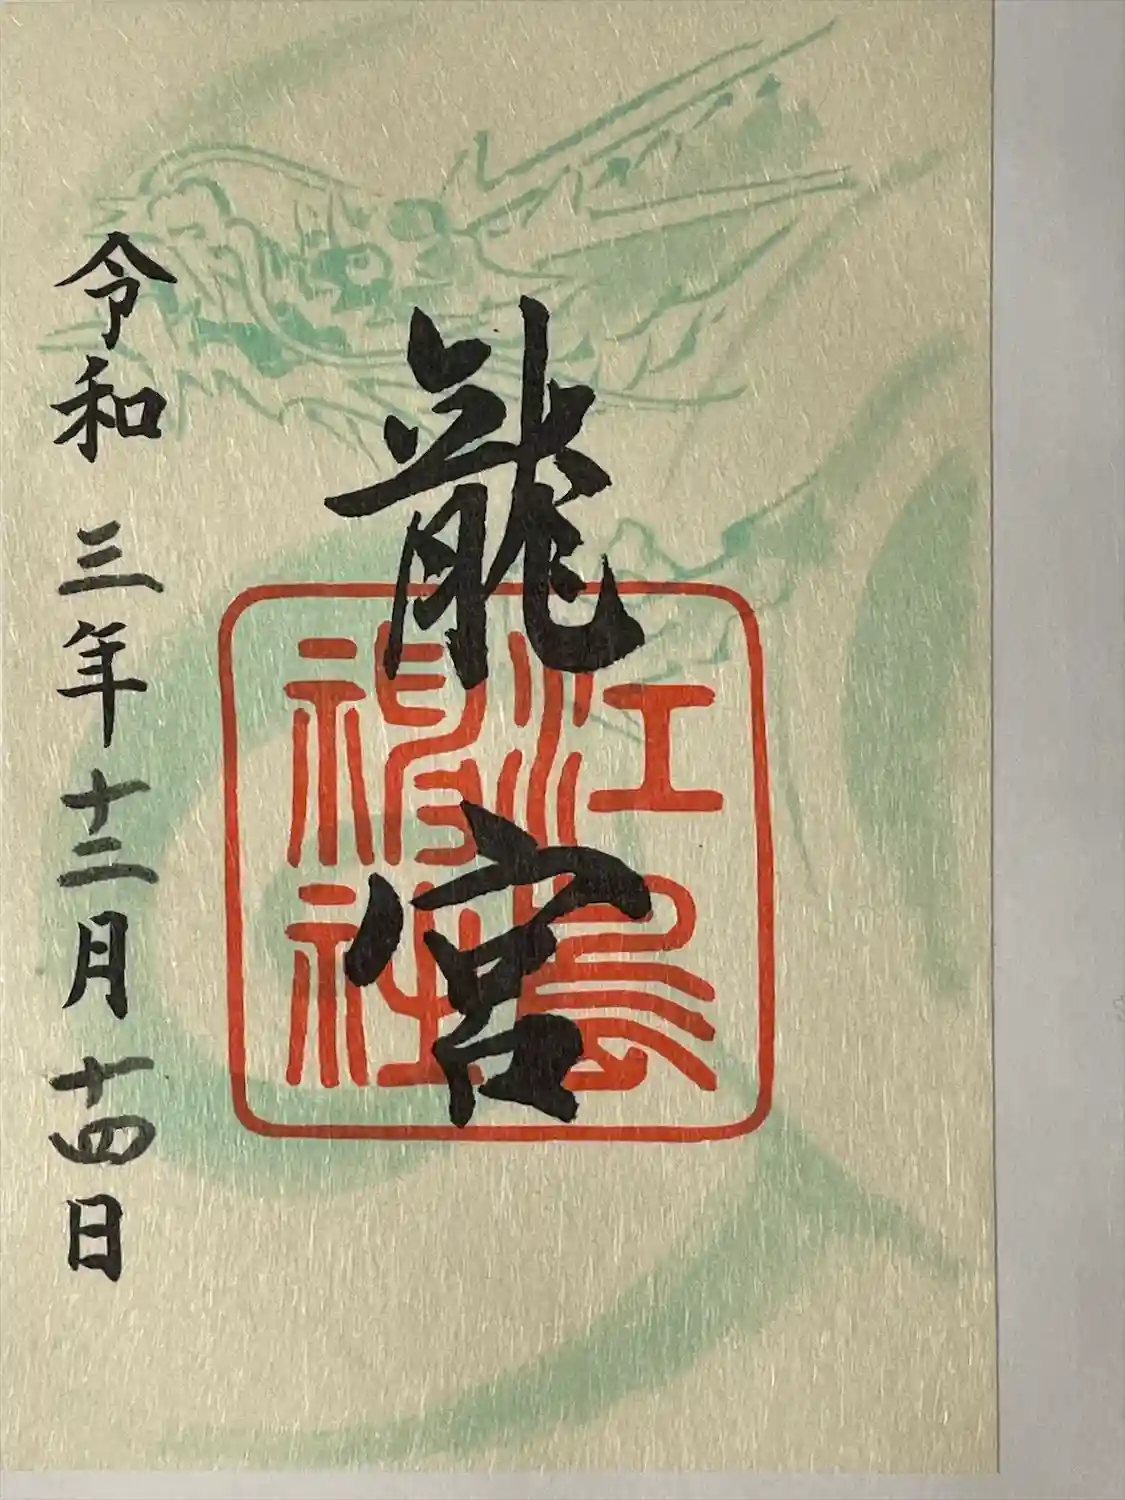 龍宮
江島
神社
令和三年十二月十四日